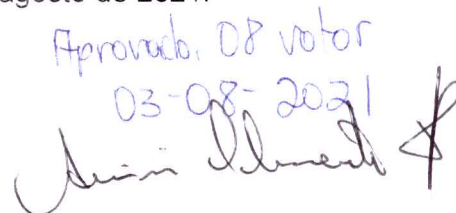 agosto de 2021.
Aprovado. 08 votos
03-08-2021